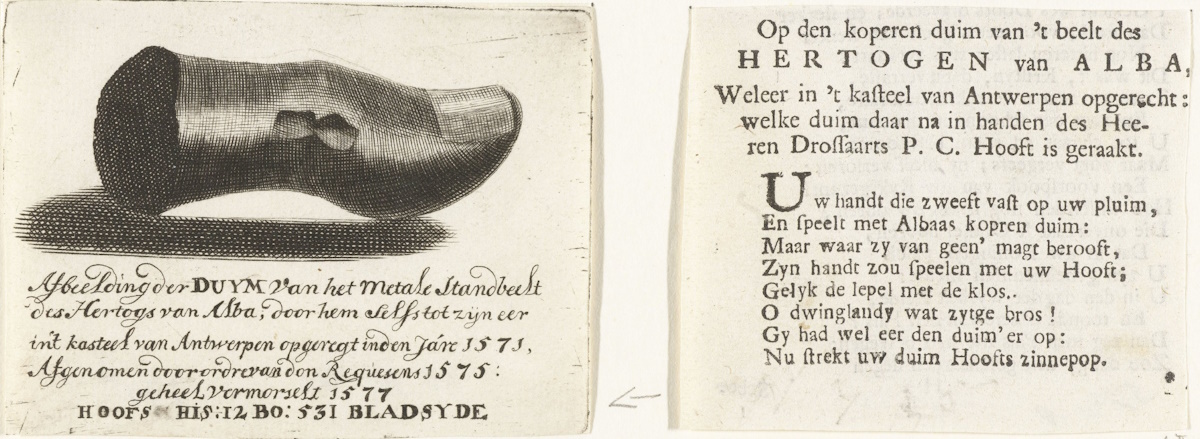 Afbeelding der DUYM van het Metale Standbeelt
des Hertogs van Alba, door hem selfs tot zijn eer
int kasteel van Antwerpen opgeregt in den Járe 1571,
Afgenomen door ordre van don Requesens 1575:
geheel vermorselt 1577
HOOFS HIS: 12 BO: 531 BLADSYDE
Op den koperen duim van 't beelt des
HERTOGEN van ALBA,
Weleer in 't kaſteel van Antwerpen opgerecht:
welke duim daar na in handen des Hee-
ren Droſſaarts P. C. Hooft is geraakt.
Uw handt die zweeft vaſt op uw pluim,
En ſpeelt met Albaas kopren duim:
Maar waar zy van geen' magt berooft,
Zyn handt zou ſpeelen met uw Hooft;
Gelyk de lepel met de klos..
O dwinglandy wat zytge bros!
Gy had wel eer den duim'er op:
Nu ſtrekt uw duim Hoofts zinnepop.